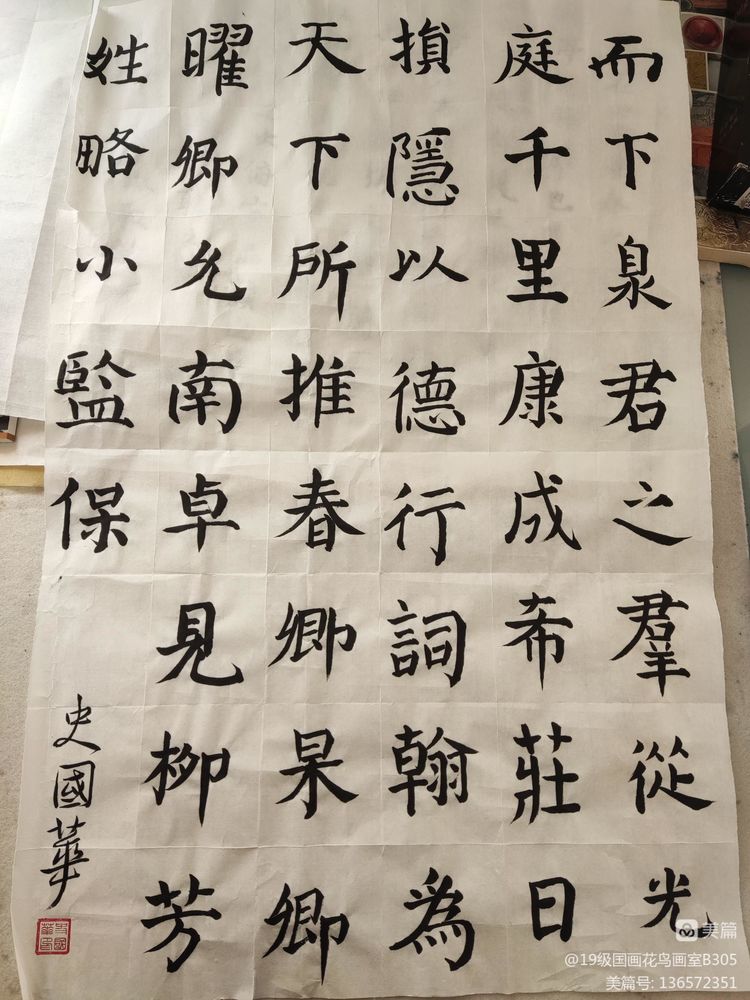 而下泉君之羣從光
庭千里康成希莊日
損隱以德行詞翰為
天下所推春卿杲卿
曜卿允南卓見柳芳
姓略小監保
史國華
美篇
@19级国画花鸟画室B305
美篇号: 136572351